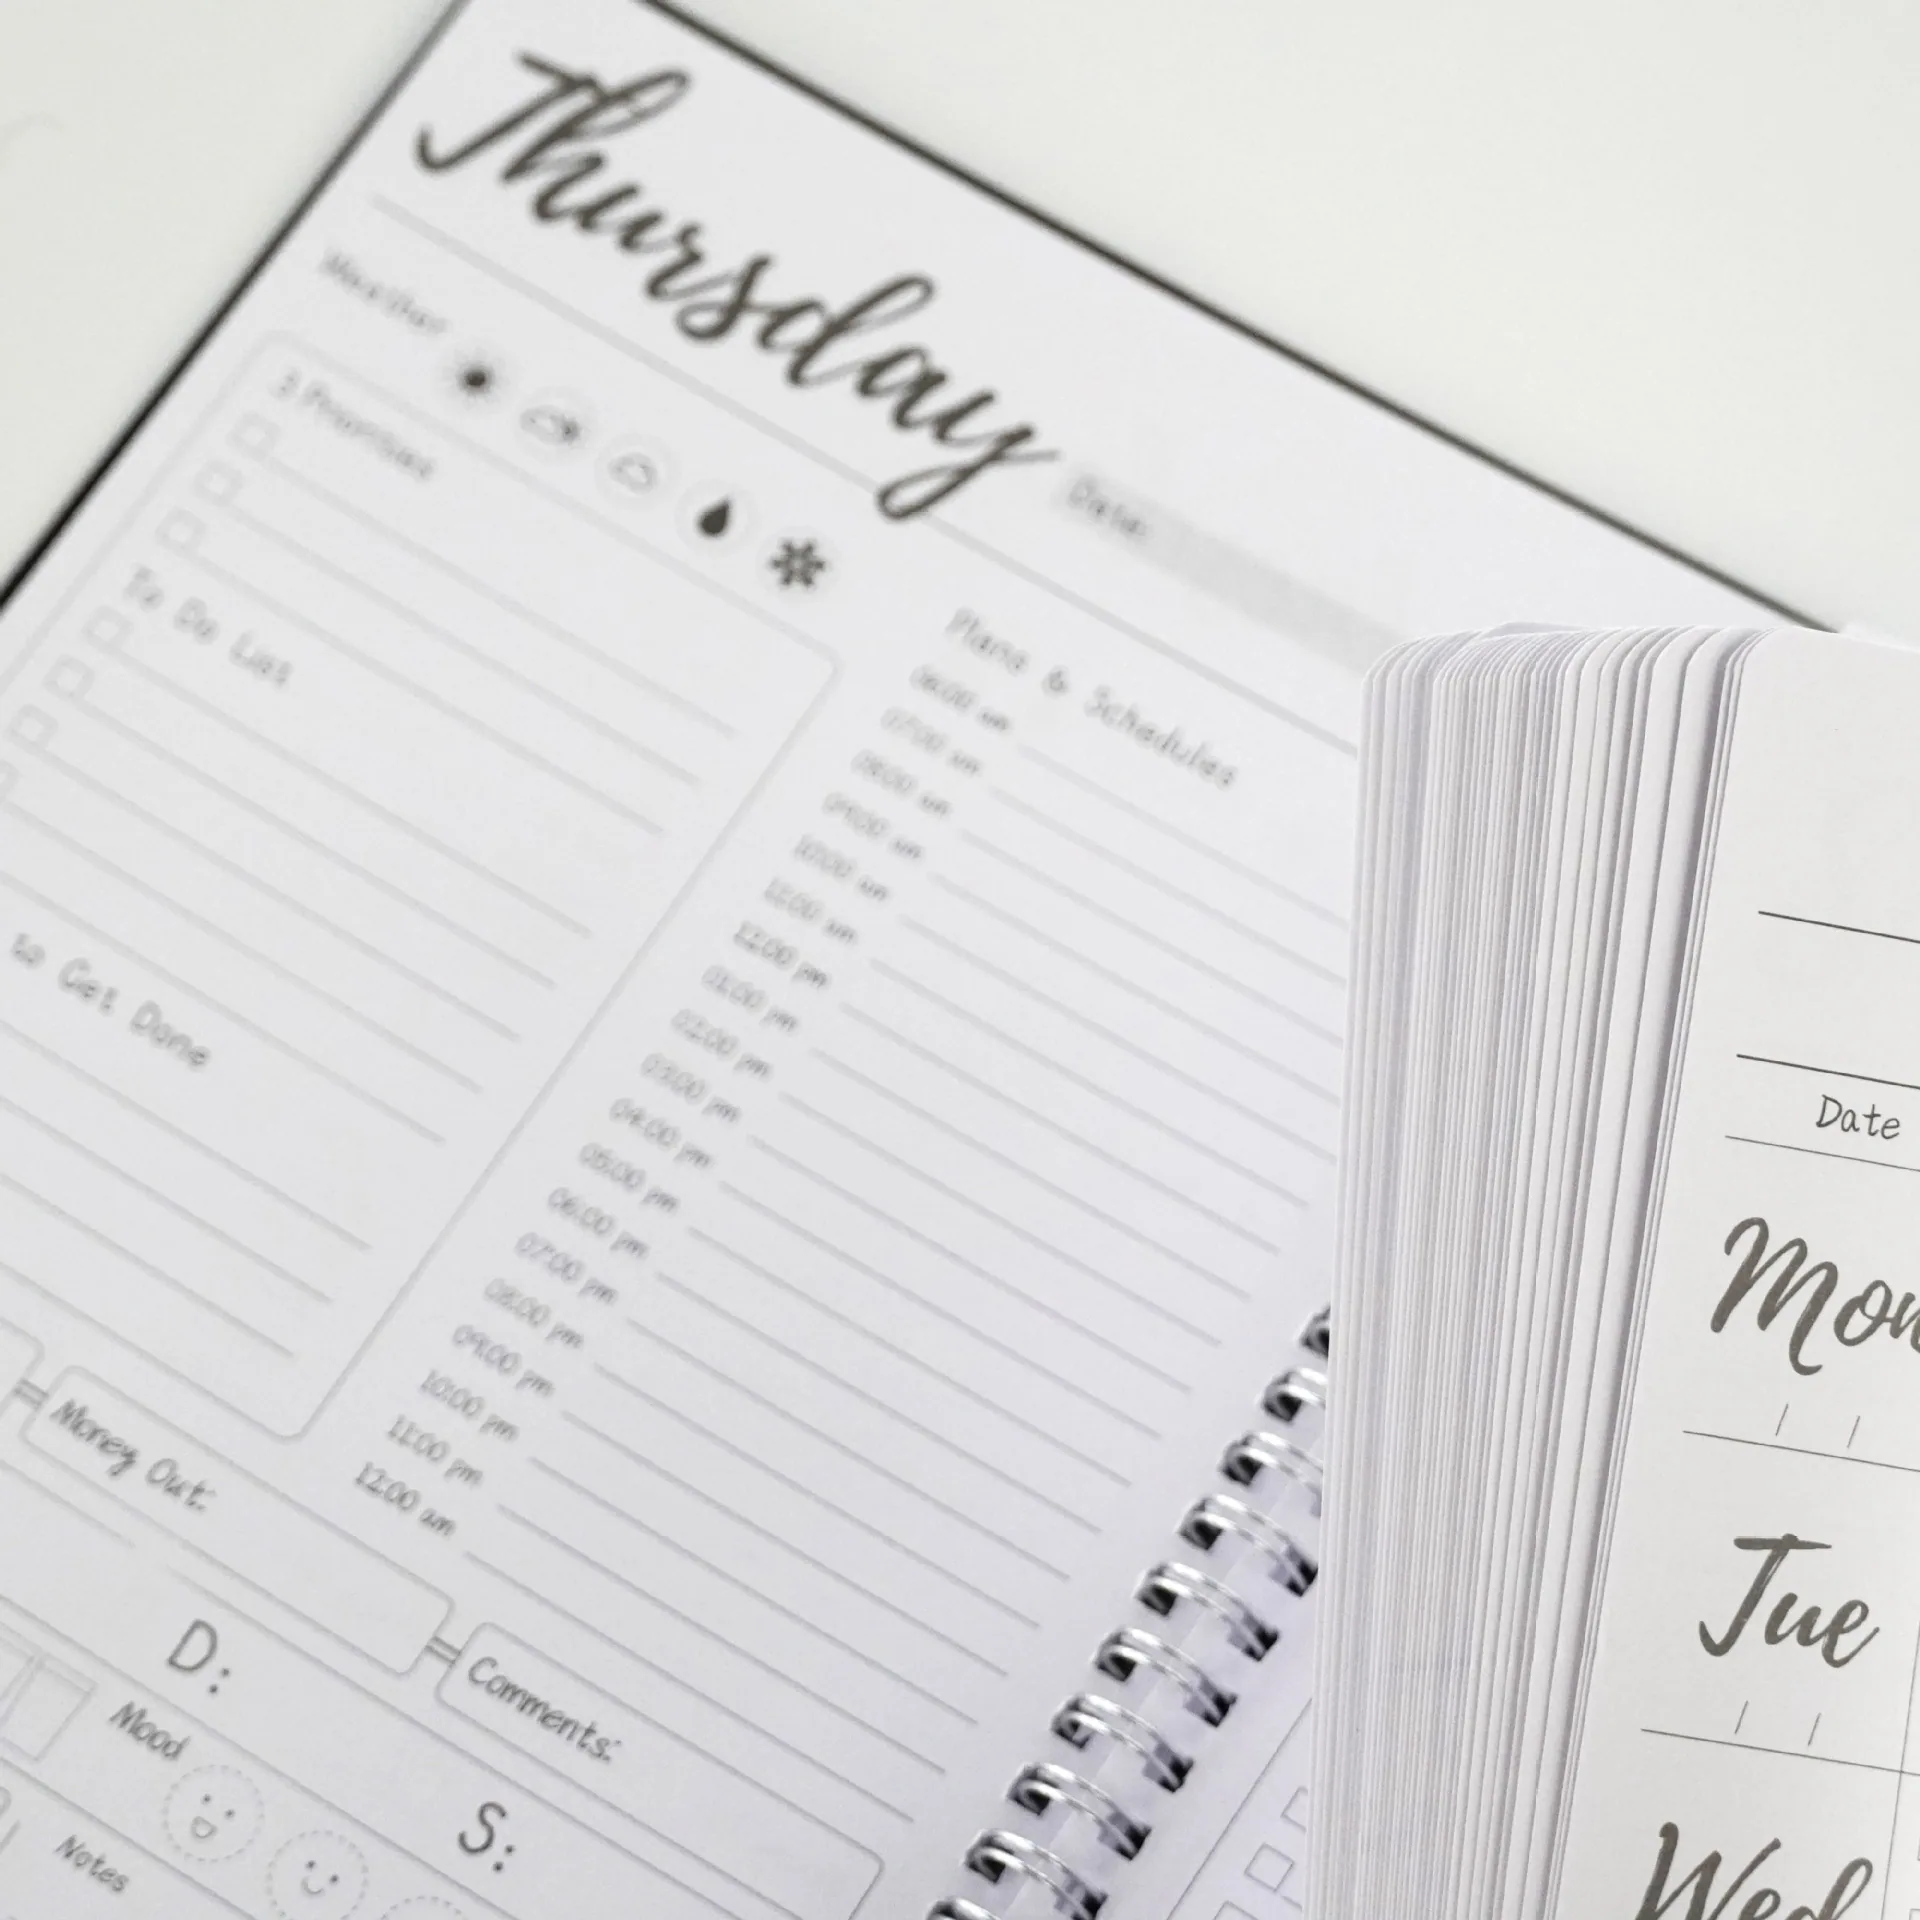 Thursday
Date:
Weather
3 Priorities
To Do List
to Get Done
Plans & Schedules
06:00 am
07:00 am
08:00 am
09:00 am
10:00 am
11:00 am
12:00 pm
01:00 pm
02:00 pm
03:00 pm
04:00 pm
05:00 pm
06:00 pm
07:00 pm
08:00 pm
09:00 pm
10:00 pm
11:00 pm
12:00 am
Money Out:
Comments:
D:
S:
Mood
Notes
Date
Mon
/ /
Tue
/ /
Wed